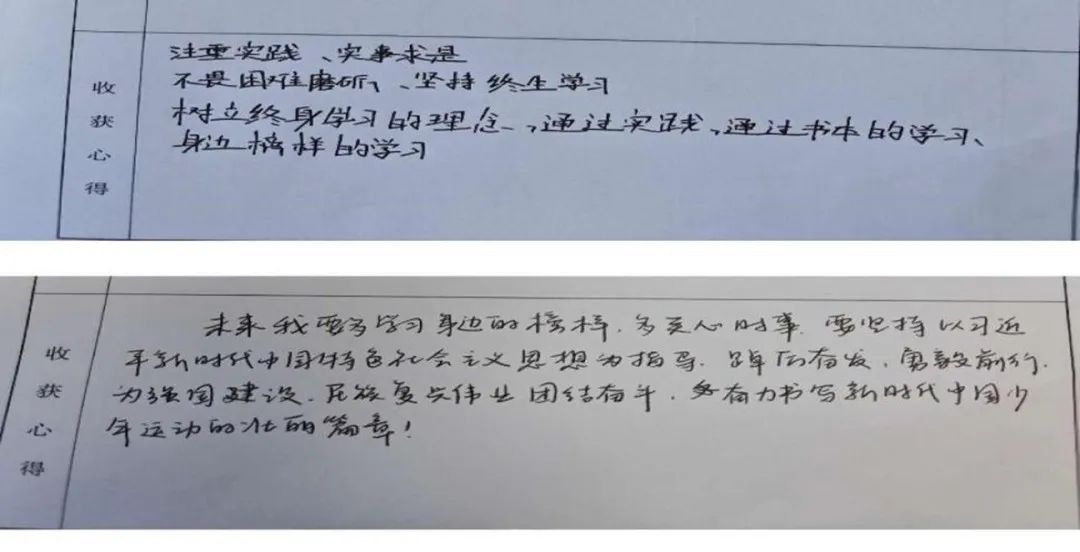 收获心得
注重实践、实事求是
不畏困难磨砺、坚持终生学习
树立终身学习的理念,通过实践,通过书本的学习、
身边榜样的学习
收获心得
未来我要多学习身边的榜样,多关心时事,要坚持以习近
平新时代中国特色社会主义思想为指导,踔厉奋发,勇毅前行,
为强国建设、民族复兴伟业团结奋斗,努力书写新时代中国少
年运动的壮丽篇章!